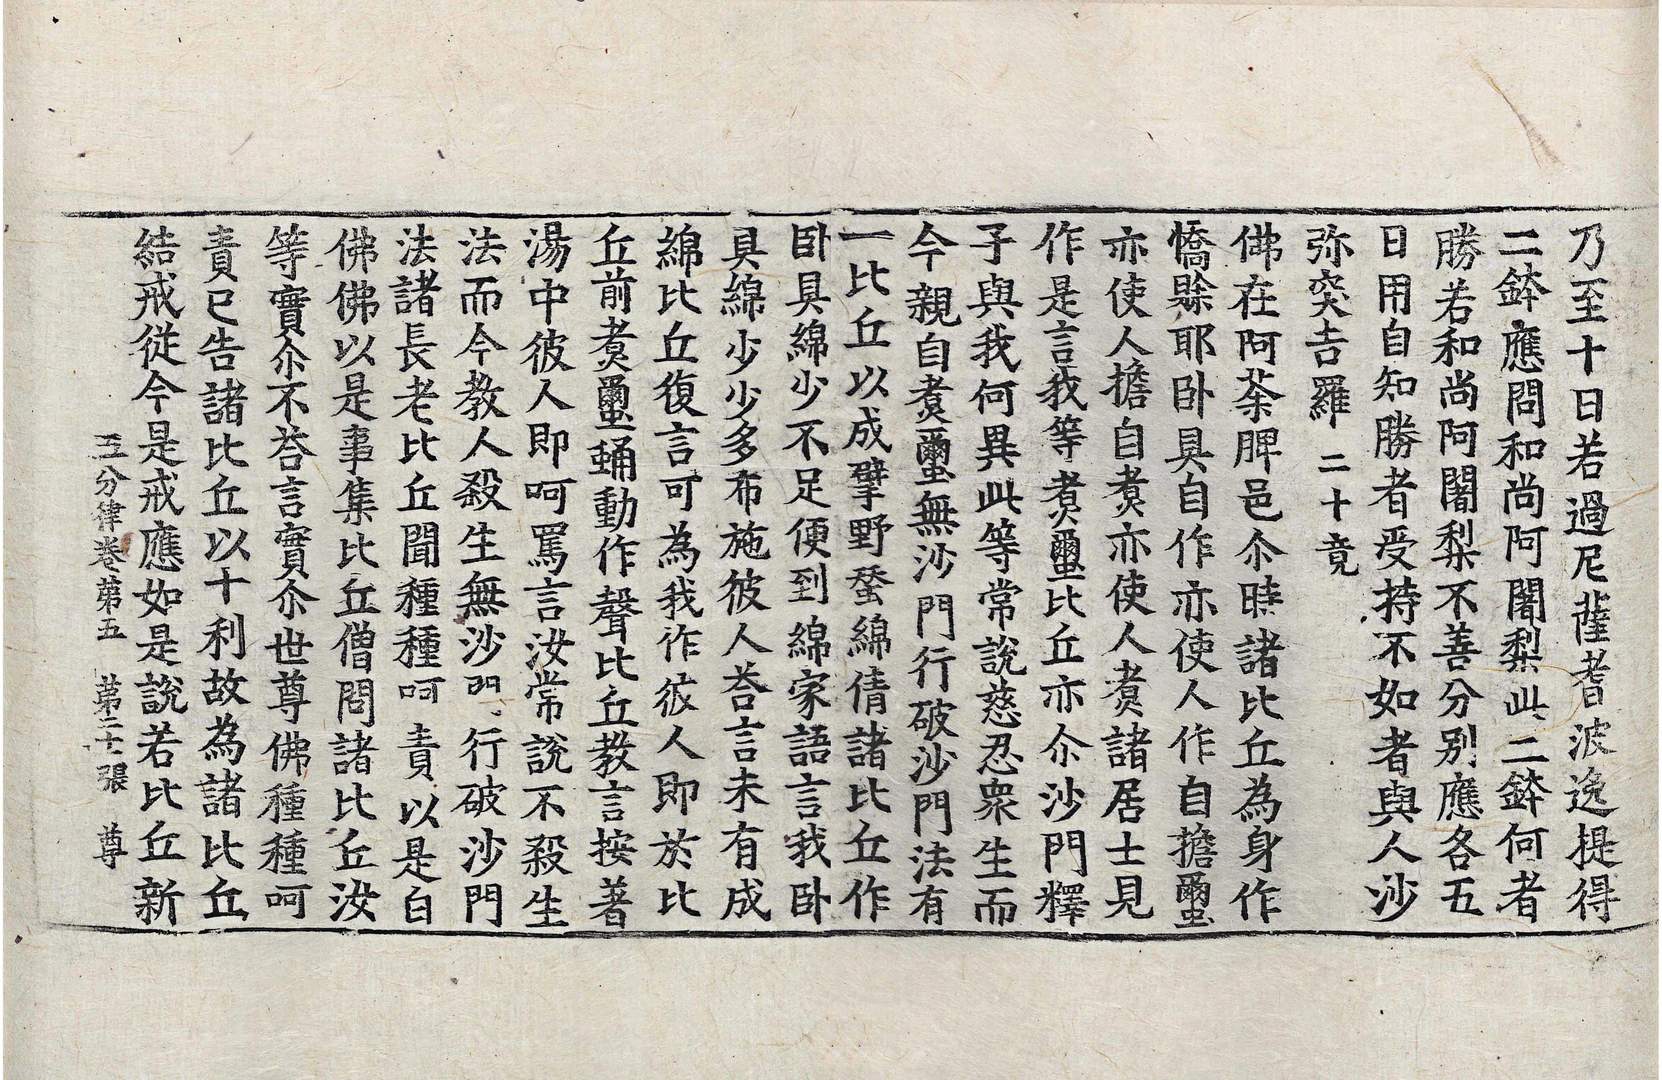 乃至十日若過尼薩耆波逸提得
二鉢應問和尚阿闍梨此二鉢何者
勝若和尚阿闍梨不善分別應各五
日用自知勝者受持不如者與人沙
弥突吉羅 二十竟
佛在阿荼脾邑尒時諸比丘為身作
憍賒耶卧具自作亦使人作自擔𧖟
亦使人擔自煑亦使人煑諸居士見
作是言我等煑𧖟比丘亦尒沙門釋
子與我何異此等常說慈忍衆生而
今親自煑𧖟無沙門行破沙門法有
一比丘以成擘野蚕綿倩諸比丘作
卧具綿少不足便到綿家語言我卧
具綿少少多布施彼人荅言未有成
綿比丘復言可為我作彼人即於比
丘前煑𧖟蛹動作聲比丘教言按著
湯中彼人即呵罵言汝常說不殺生
法而今教人殺生無沙門行破沙門
法諸長老比丘聞種種呵責以是白
佛佛以是事集比丘僧問諸比丘汝
等實尒不荅言實尒世尊佛種種呵
責已告諸比丘以十利故為諸比丘
結戒從今是戒應如是說若比丘新
五分律卷第五 第二十張 尊